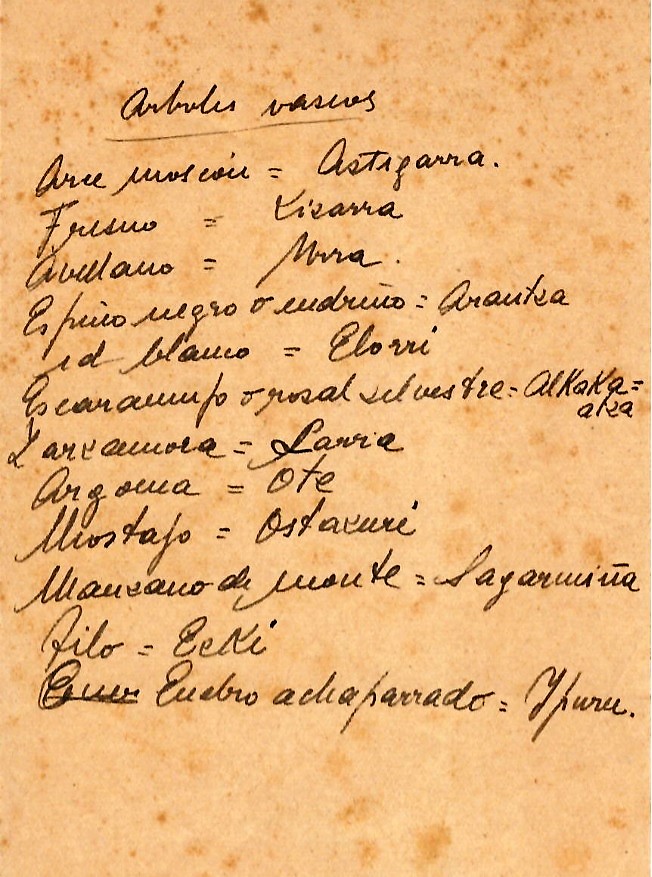 Arboles vascos
Arce moscón = Astigarra.
Fresno = Lizarra
Avellano = Urra.
Espino negro o endrino = Arantza
id blanco = Elorri
Escaramujo o rosal silvestre = Alkaka=
atza
Zarzamora = Larra
Argoma = Ote
Mostajo = Ostazuri
Manzano de monte = Sagarmiña
Tilo = Ezki
Enebro achaparrado = Ypuru.